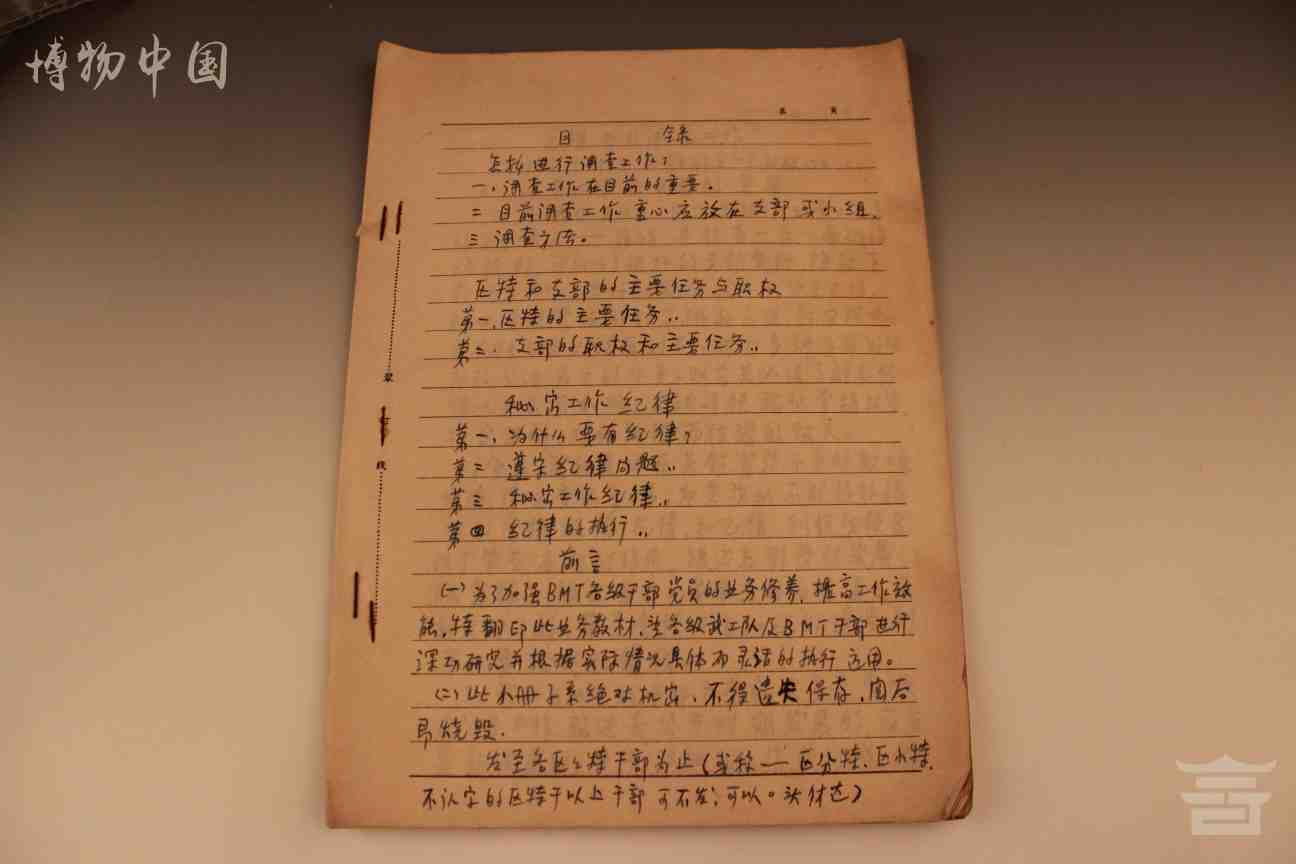 博物中国
第 页
目 录
怎样进行调查工作？
一、调查工作在目前的重要。
二 目前调查工作重心应放在支部或小组、
三 调查方法。
区特和支部的主要任务与职权
第一、区特的主要任务、、
第二、支部的职权和主要任务、、
秘密工作纪律
第一、为什么要有纪律？
第二 遵守纪律问题、、
第三 秘密工作纪律、、
第四 纪律的执行、、
前言
(一)为了加强BMT各级干部党员的业务修养，提高工作效
能，特翻印此业务教材，望各级武工队及BMT干部进行
深切研究并根据实际情况具体而灵活的执行运用。
(二)此小册子系绝对机密、不得遗失保存，阅后
即烧毁.
发至各区公特干部为止(或称一区分特、区小特、
不认字的区特干以上干部可不发，可以。头传达)
装
订
线